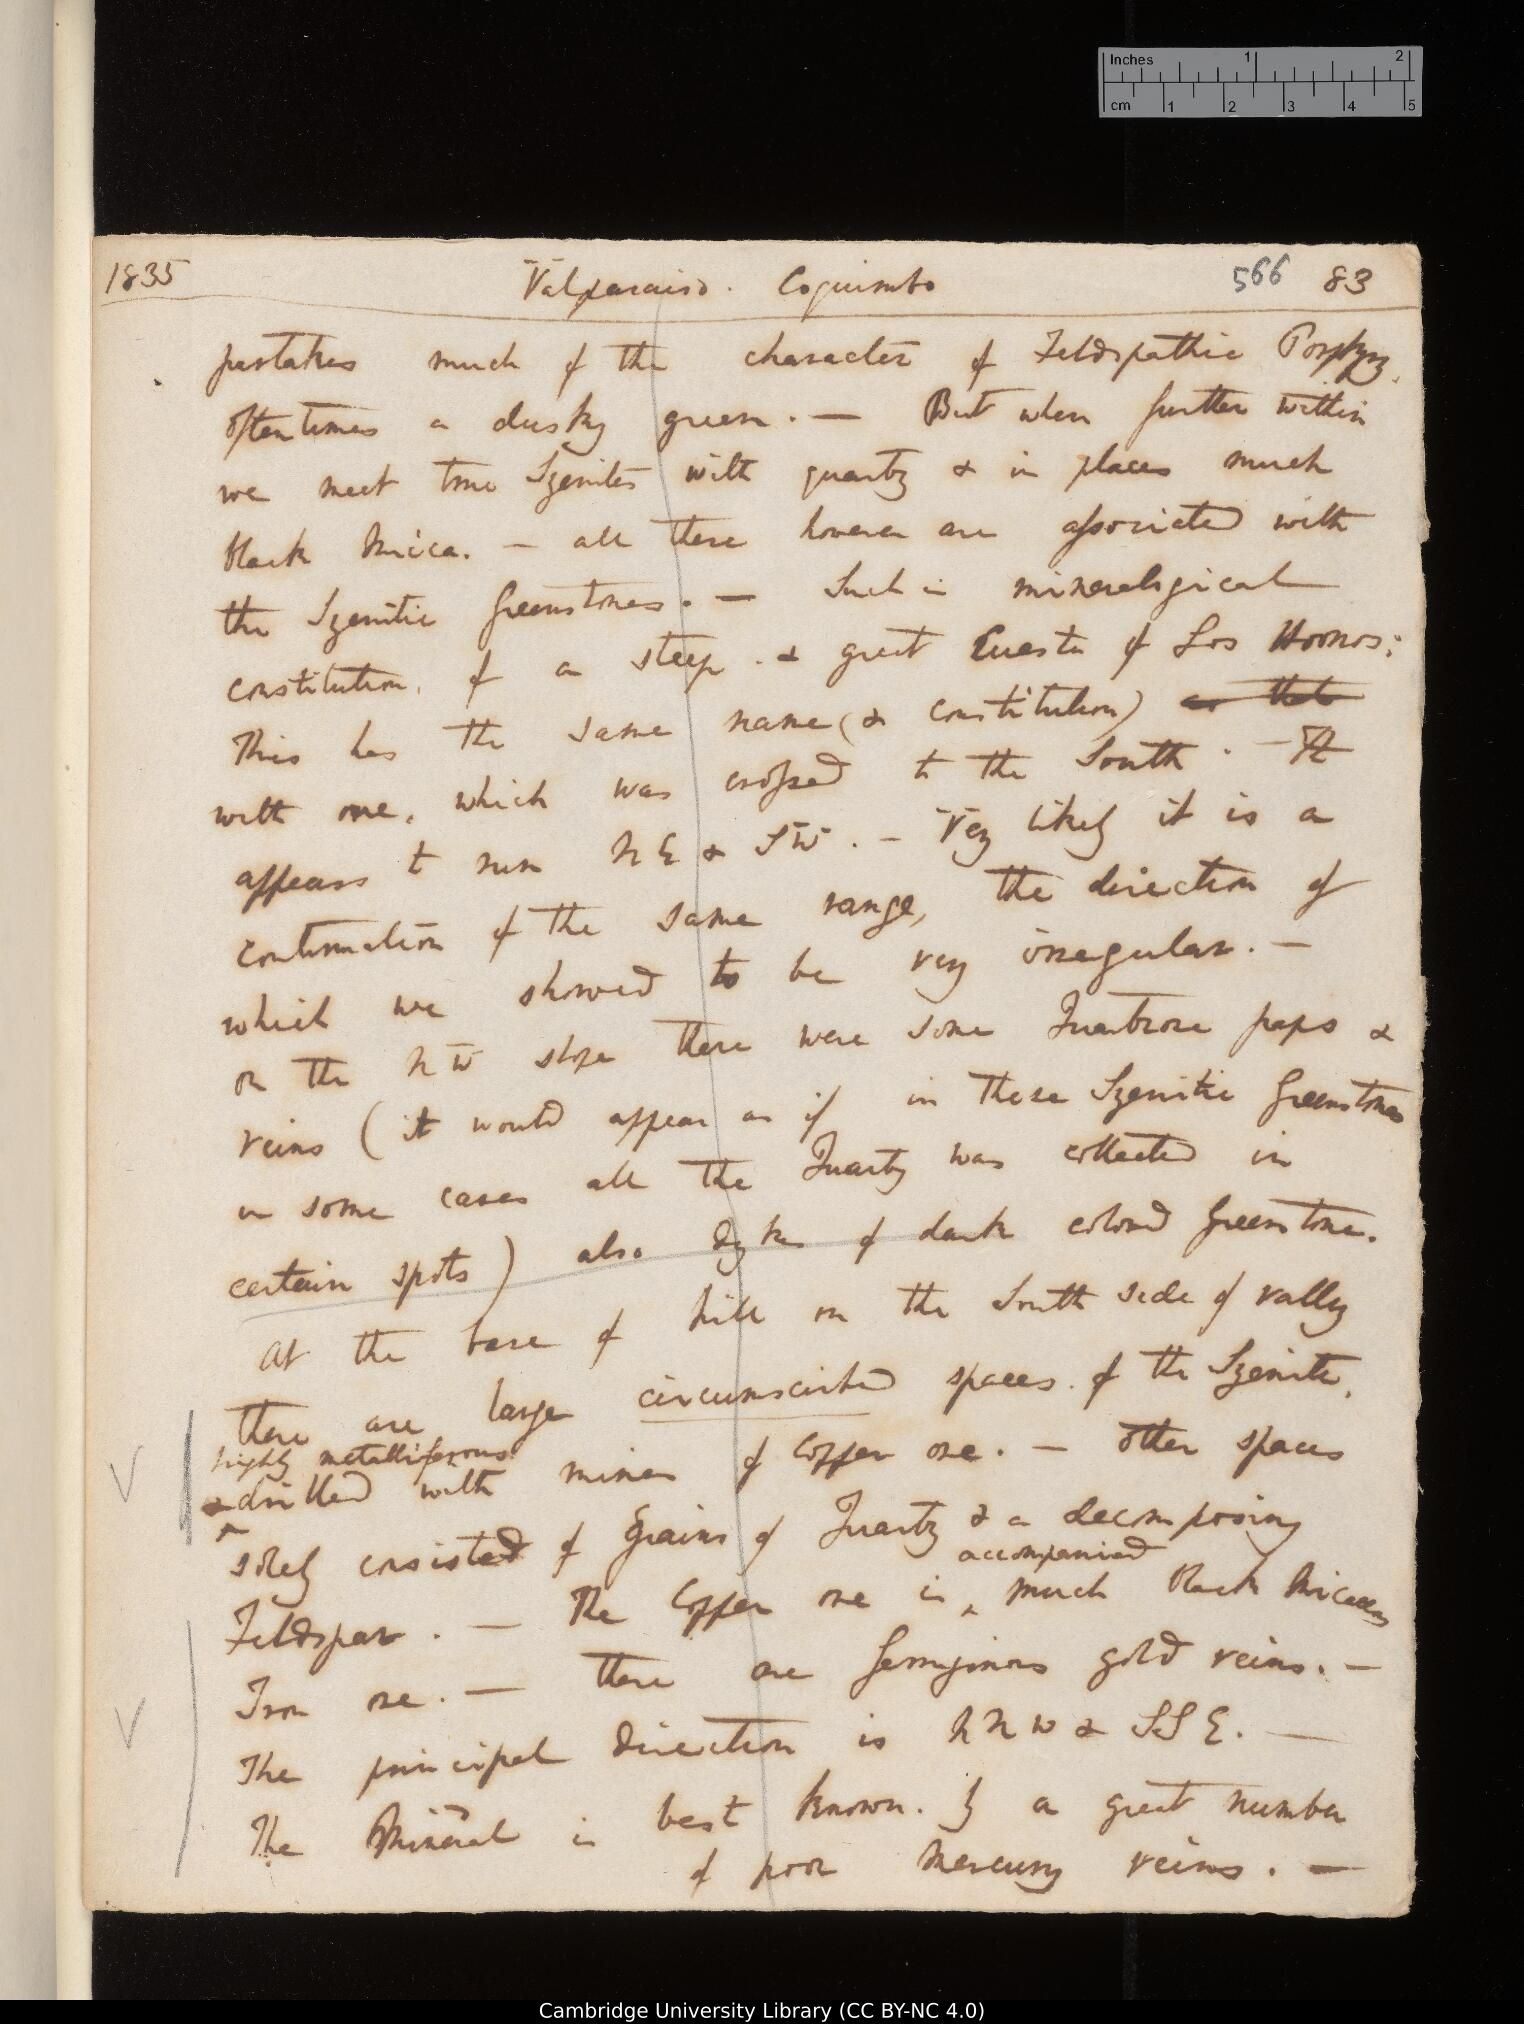 Inches 1 2
cm 1 2 3 4 5
1835 Valparaiso. Coquimbo 566 83
partakes much of the character of Feldspathic Porphyry.
Oftentimes a dusky green. — But when further within
we meet true Syenites with quartz & in places much
black Mica. — all these however are associated with
the Syenitic Greenstones. — Such is mineralogical
constitution, of a steep & great Cuesta of Los Hornos:
This has the same name (& constitution) as that
with one, which was crossed to the South. — It
appears to run NE & SW. — Very likely it is a
continuation of the same range, the direction of
which we showed to be very irregular. —
on the NW slope there were some Quartzose paps &
veins (it would appear as if in these Syenitic Greenstones
in some cases all the Quartz was collected in
certain spots) also dykes of dark colored Greenstone.
At the base of hill on the South side of valley
there are large circumscribed spaces of the Syenite,
highly metalliferous
& drilled with mines of Copper ore. — Other spaces
solely consisted of Grains of Quartz & a decomposing
accompanied
Feldspar. — The Copper ore is ^ much black Micaceous
Iron ore. — there are ferruginous gold veins. —
The principal direction is NNW & SSE. —
The Mineral is best known. by a great number
of poor Mercury veins. —
Cambridge University Library (CC BY-NC 4.0)